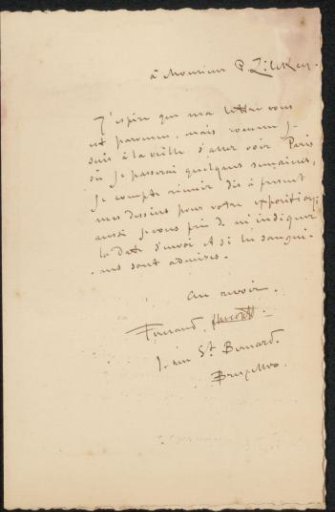 à Monsieur P. Zilcken.
J'espère que ma lettre vous
est parvenue, mais comme je
suis à la veille d'aller voir Paris
où je passerai quelques semaines,
je compte réunir dès à présent
mes dessins pour votre exposition;
aussi je vous prie de m'indiquer
la date d'envoi et si les sangui-
nes sont admises.
Au revoir.
Fernand
1. rue St. Bernard.
Bruxelles